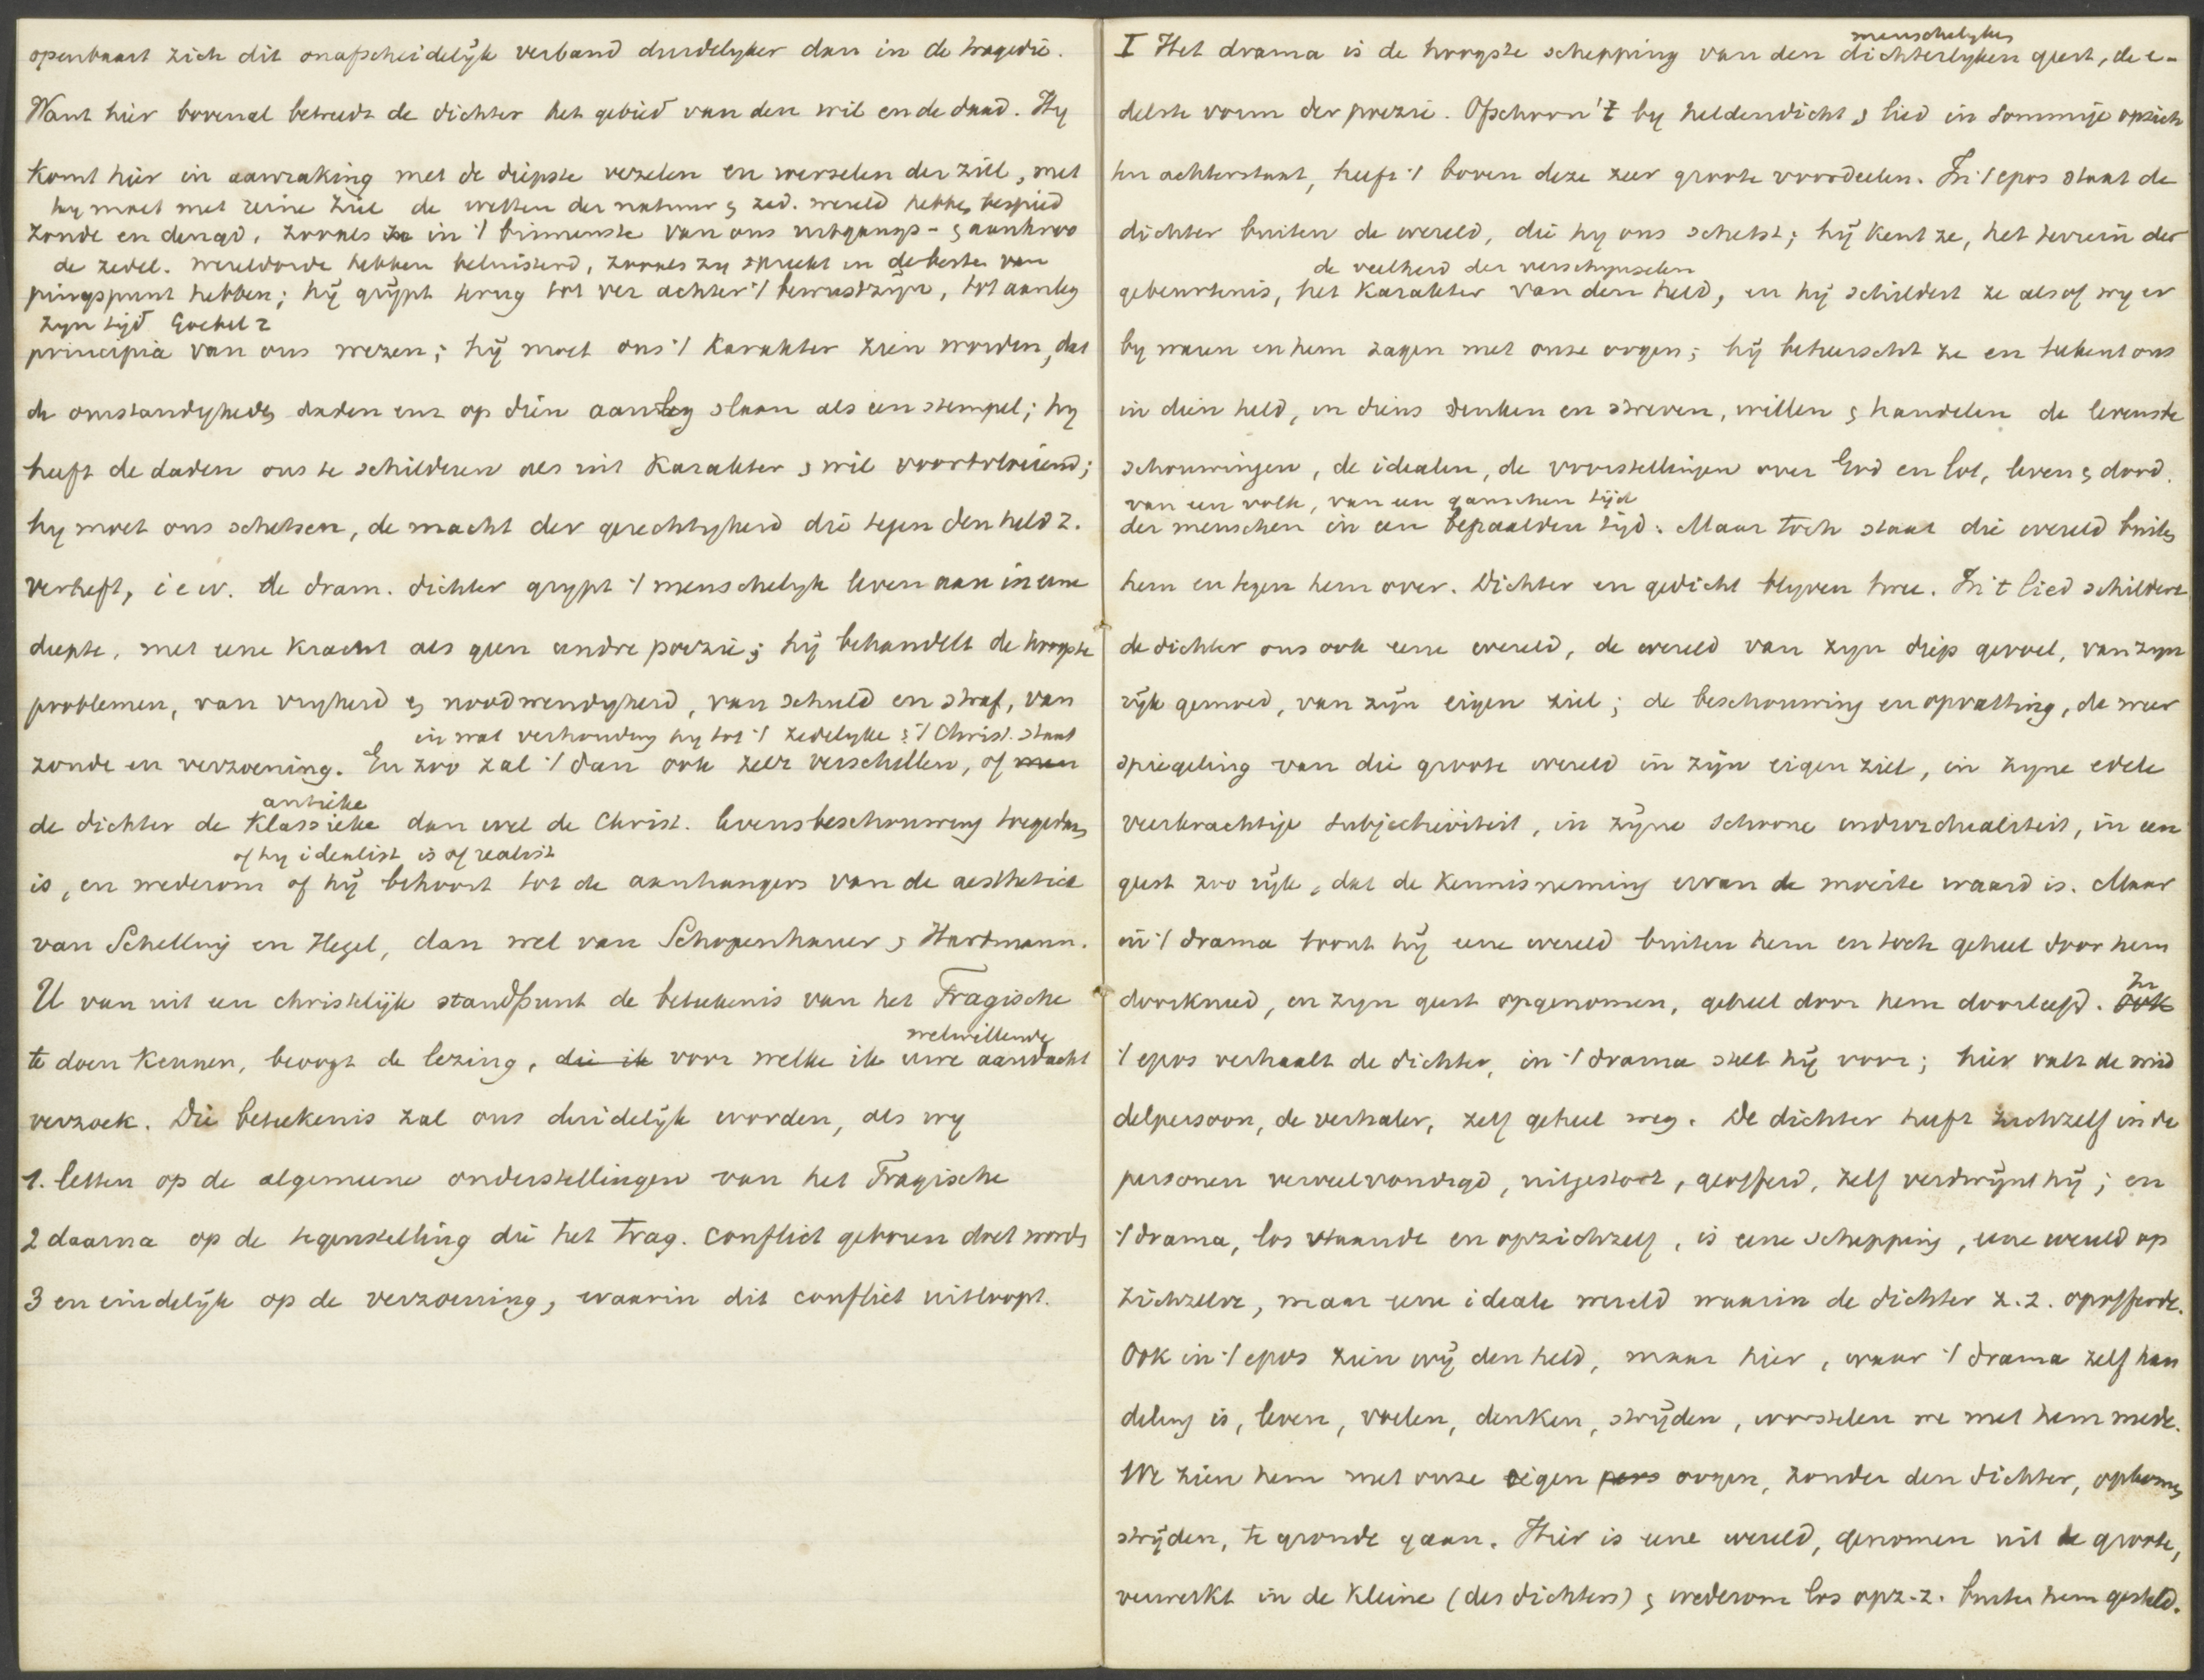 openbaart zich dit onafscheidelijk verband duidelyker dan in de tragedie.
Want hier bovenal betreedt de dichter het gebied van den wil en de daad. Hy
komt hier in aanraking met de diepste vezelen en wortelen der ziel, met
hy moet met reine ziel de wetten der natuur & zed. wereld hebben bespied
zonde en deugd, zooals ze in 't binnenste van ons uitgangs- & aanknoo
de zedel. wereldorde hebben beluisterd, zooals zy spreekt in de beste van
pingspunt hebben; hij grijpt terug tot ver achter 't bewustzijn, tot aanleg
zyn tijd
principia van ons wezen; hij moet ons 't karakter zien worden, dat
de omstandigheden daden enz op dien aanleg slaan als een stempel; hy
heeft de daden ons te schilderen als uit karakter & wil voortvloeiend;
hy moet ons schetsen, de macht der gerechtigheid die tegen den held z.
verheft, i e w. de dram. dichter grypt 't menschelyk leven aan in eene
diepte, met eene kracht als geen andre poezie; hij behandelt de hoogste
problemen, van vryheid & noodwendigheid, van schuld en straf, van
in wat verhouding hy tot 't zedelyke & 't Christ. staat
zonde en verzoening. En zoo zal 't dan ook zeer verschillen, of men
antieke
de dichter de Klassieke dan wel de Christ. levensbeschouwing toegedaan
of hy idealist is of realist
is, en wederom of hij behoort tot de aanhangers van de aesthetica
van Schelling en Hegel, dan wel van Schopenhauer & Hartmann.
U van uit een christelijk standpunt de beteekenis van het Tragische
welwillende
te doen kennen, beoogt de lezing, die ik voor welke ik uwe aandacht
verzoek. Die beteekenis zal ons duidelijk worden, als wy
1. letten op de algemeene onderstellingen van het Tragische
2 daarna op de tegenstelling die het Trag. conflict geboren doet worden
3 en eindelijk op de verzoening, waarin dit conflict uitloopt.
menschelyken
I Het drama is de hoogste schepping van den dichterlyken geest, de e-
delste vorm der poezie. Ofschoon 't by heldendicht & lied in sommige opzich
ten achterstaat, heeft 't boven deze zeer groote voordeelen. In 't epos staat de
dichter buiten de wereld, die hy ons schetst; hij kent ze, het terrein der
de veelheid der verschijnselen
gebeurtenis, het karakter van den held, en hij schildert ze alsof wy er
by waren en hem zagen met onze oogen; hij beheerscht ze en teekent ons
in dien held, in diens denken en streven, willen & handelen de levensbe
schouwingen, de idealen, de voorstellingen over God en lot, leven & dood.
van een volk, van een ganschen tijd
der menschen in een bepaalden tijd. Maar toch staat die wereld buiten
hem en tegen hem over. Dichter en gedicht blyven twee. In 't lied schildert
de dichter ons ook eene wereld, de wereld van zyn diep gevoel, van zyn
rijk gemoed, van zijn eigen ziel; de beschouwing en opvatting, de weer
spiegeling van die groote wereld in zijn eigen ziel, in zyne edele
veerkrachtige subjectiviteit, in zijne schoone individualiteit, in een
geest zoo rijk, dat de kennisneming ervan de moeite waard is. Maar
in 't drama toont hij eene wereld buiten hem en toch geheel door hem
doorkneed, in zyn geest opgenomen, geheel door hem doorleefd. ook
In
't epos verhaalt de dichter, in 't drama stelt hij voor; hier valt de mid
delpersoon, de verhaler, zelf geheel weg. De dichter heeft zichzelf in de
personen verveelvoudigd, uitgestort, geofferd, zelf verdwijnt hij; en
't drama, los staande en opzichzelf, is eene schepping, eene wereld op
zichzelve, maar eene ideale wereld waarin de dichter z.z. opofferde.
Ook in 't epos zien wij den held, maar hier, waar 't drama zelf han
deling is, leven, voelen, denken, strijden, worstelen we met hem mede.
We zien hem met onze eigen pers oogen, zonder den dichter, opkomen
strijden, te gronde gaan. Hier is eene wereld, genomen uit de groote,
verwerkt in de kleine (des dichters) & wederom los op z.z. buiten hem gesteld.